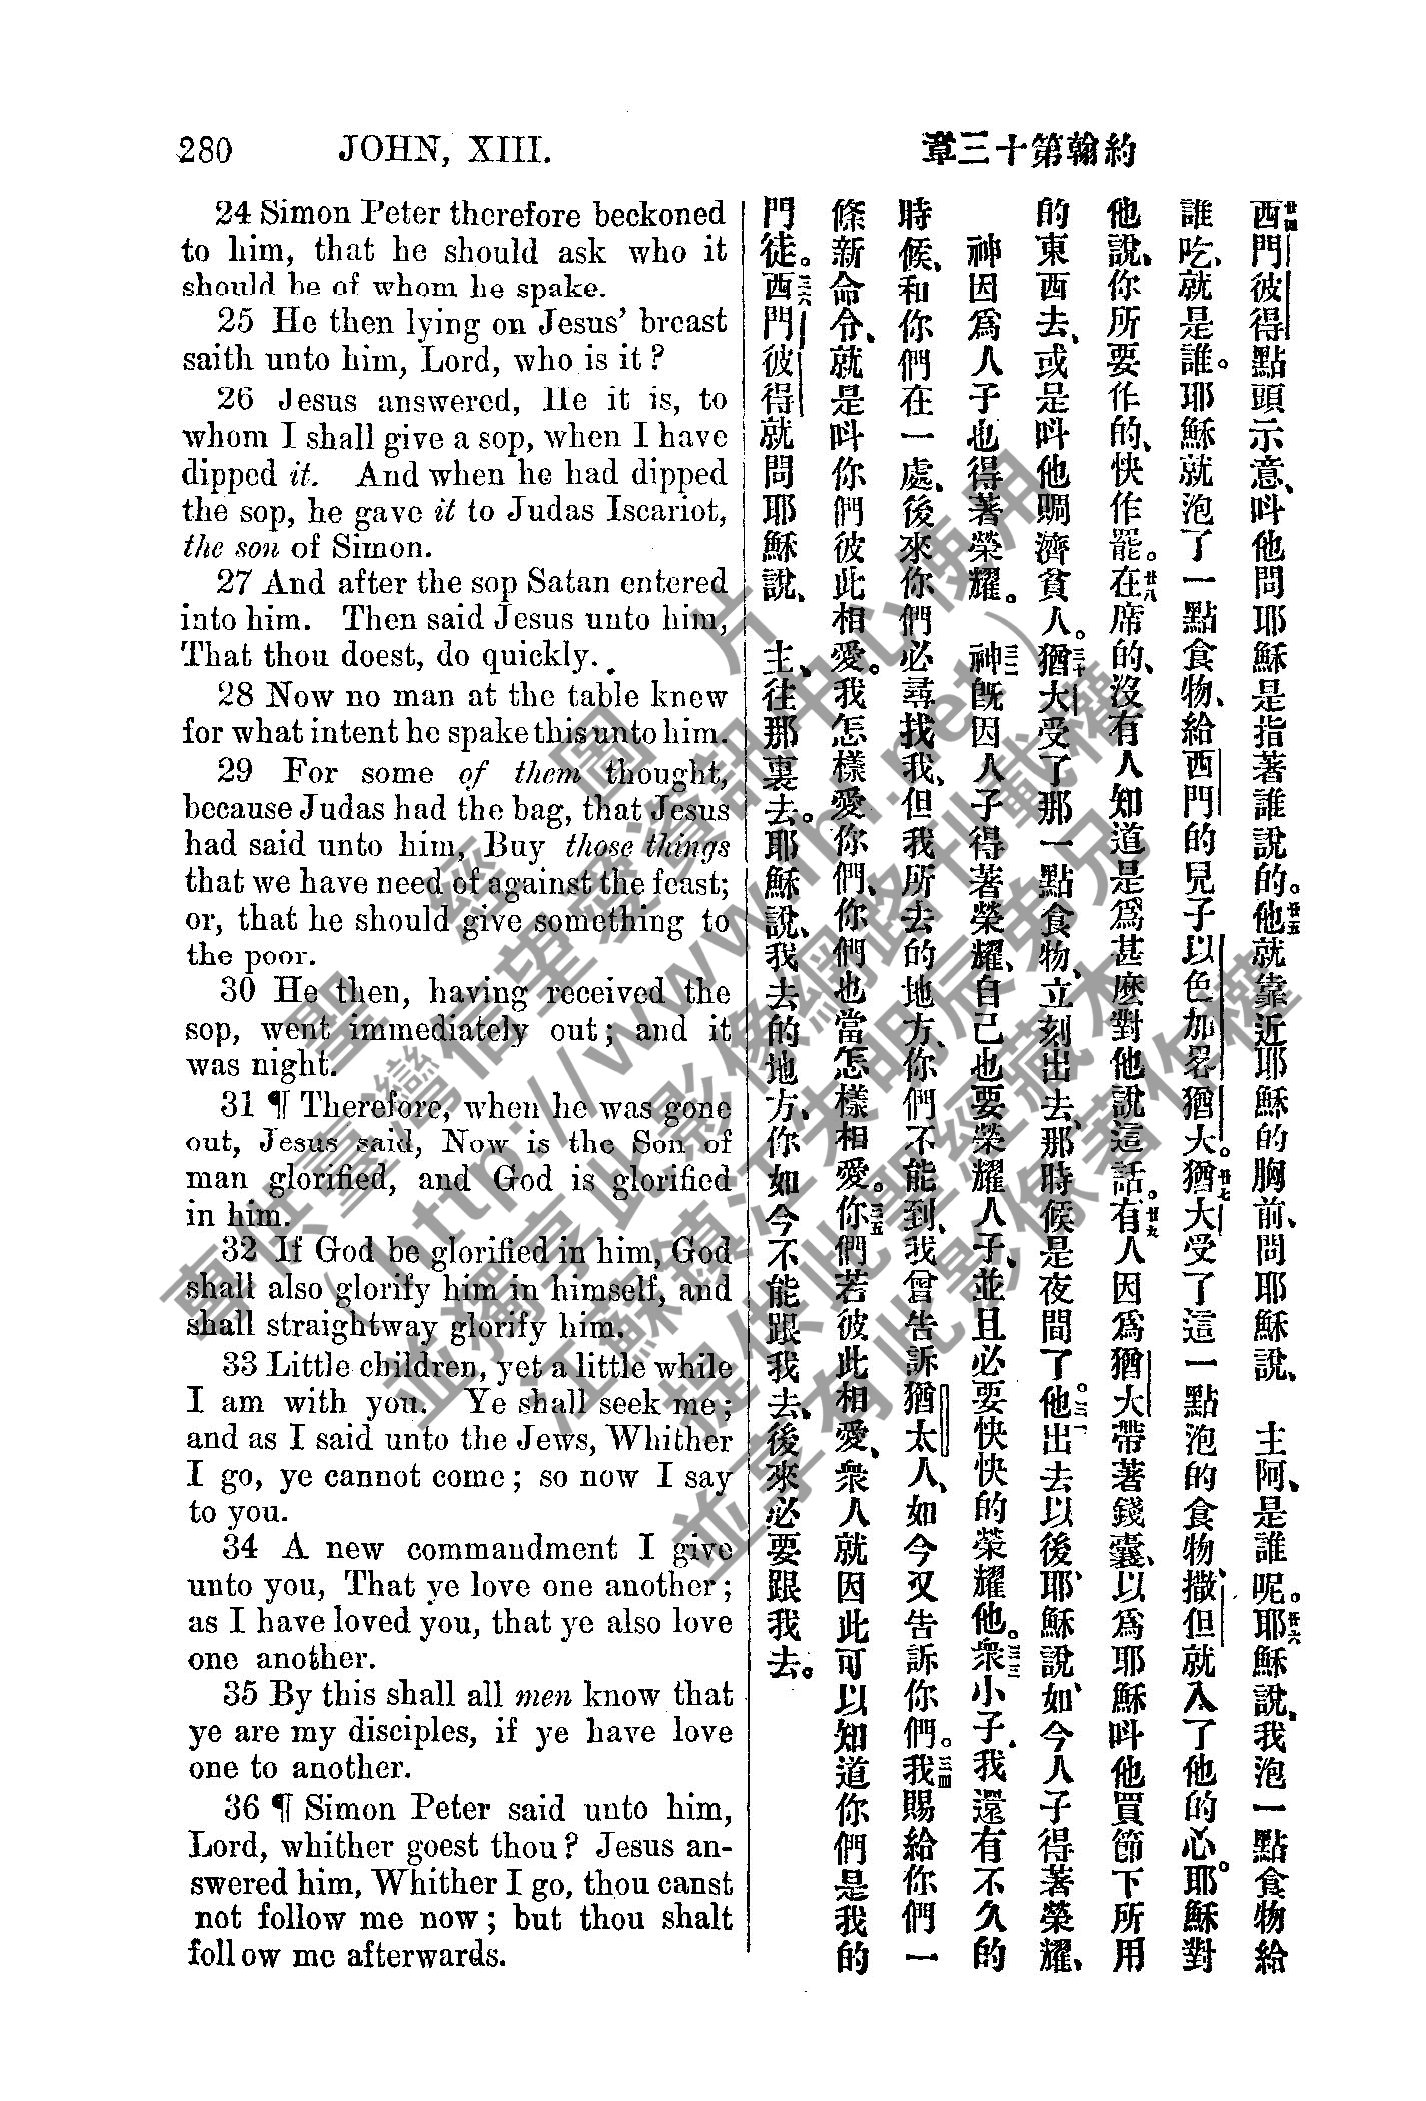 280 JOHN, XIII.
約翰第十三章
24 Simon Peter therefore beckoned
to him, that he should ask who it
should be of whom he spake.
25 He then lying on Jesus' breast
saith unto him, Lord, who is it?
26 Jesus answered, He it is, to
whom I shall give a sop, when I have
dipped it. And when he had dipped
the sop, he gave it to Judas Iscariot,
the son of Simon.
27 And after the sop Satan entered
into him. Then said Jesus unto him,
That thou doest, do quickly.
28 Now no man at the table knew
for what intent he spake this unto him.
29 For some of them thought,
because Judas had the bag, that Jesus
had said unto him, Buy those things
that we have need of against the feast;
or, that he should give something to
the poor.
30 He then, having received the
sop, went immediately out; and it
was night.
31 ¶ Therefore, when he was gone
out, Jesus said, Now is the Son of
man glorified, and God is glorified
in him.
32 If God be glorified in him, God
shall also glorify him in himself, and
shall straightway glorify him.
33 Little children, yet a little while
I am with you. Ye shall seek me;
and as I said unto the Jews, Whither
I go, ye cannot come; so now I say
to you.
34 A new commandment I give
unto you, That ye love one another;
as I have loved you, that ye also love
one another.
35 By this shall all men know that
ye are my disciples, if ye have love
one to another.
36 ¶ Simon Peter said unto him,
Lord, whither goest thou? Jesus an-
swered him, Whither I go, thou canst
not follow me now; but thou shalt
follow me afterwards.
廿四西門彼得點頭示意、呌他問耶穌是指著誰說的。廿五他就靠近耶穌的胸前、問耶穌說、 主阿、是誰呢。廿六耶穌說、我泡一點食物給
誰吃、就是誰。耶穌就泡了一點食物、給西門的兒子以色加畧猶大。廿七猶大受了這一點泡的食物、撒但就入了他的心。耶穌對
他說、你所要作的、快作罷。廿八在席的、沒有人知道是爲甚麽對他說這話。廿九有人因爲猶大帶著錢囊、以爲耶穌呌他買節下所用
的東西去、或是呌他賙濟貧人。三十猶大受了那一點食物、立刻出去、那時候是夜間了。三一他出去以後、耶穌說、如今人子得著榮耀、
神因爲人子也得著榮耀。三二 神旣因人子得著榮耀、自己也要榮耀人子、並且必要快快的榮耀他。三三衆小子、我還有不久的
時候、和你們在一處、後來你們必尋找我、但我所去的地方、你們不能到、我曾告訴猶太人、如今又告訴你們。三四我賜給你們一
條新命令、就是呌你們彼此相愛。我怎樣愛你們、你們也當怎樣相愛。三五你們若彼此相愛、衆人就因此可以知道你們是我的
門徒。三六西門彼得就問耶穌說、 主、往那裏去。耶穌說、我去的地方、你如今不能跟我去、後來必要跟我去。
聖經圖片
臺灣信望愛資訊中心使用
(http://www.fhl.net)
並獨享此影像網路刊載權
江蘇鎮江朱明辰弟兄
提供此聖經藏本
並享有此影像著作權